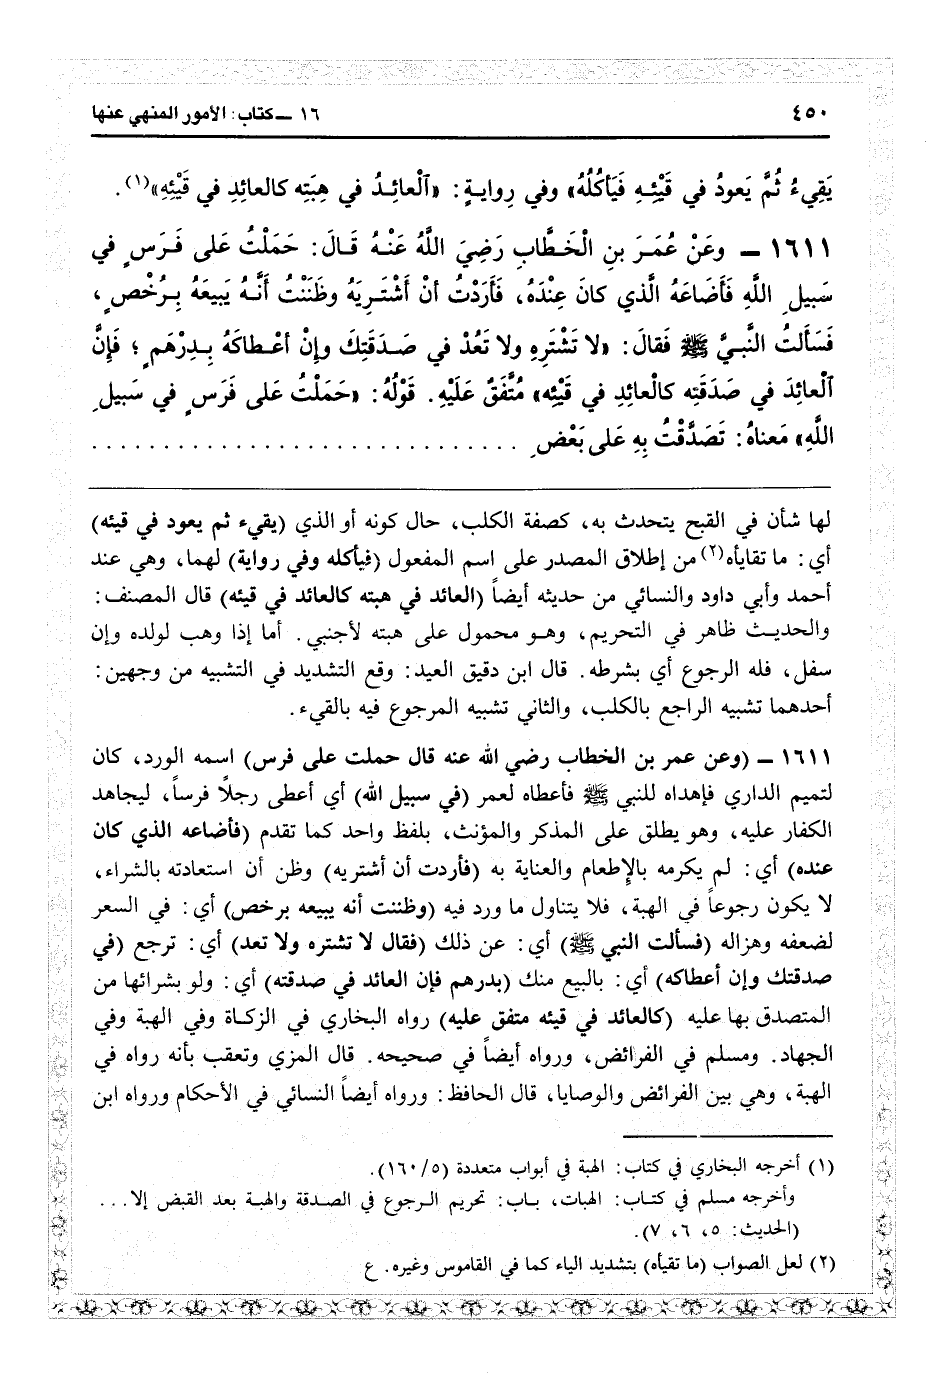 ٤٥٠
١٦ ــ كتاب: الأمور المنهي عنها
يَقِيءُ ثُمَّ يَعودُ في قَيْئِهِ فَيَأكُلُهُ» وفي رِوايةٍ: «اَلْعائِدُ في هِبَتِه كالعائِدِ في قَيْئِهِ»(١).
١٦١١ ــ وعَنْ عُمَرَ بنِ الْخَطَّابِ رَضِيَ اللَّهُ عَنْهُ قَالَ: حَمَلْتُ عَلى فَرَسٍ في
سَبيلِ اللَّهِ فَأَضَاعَهُ الَّذي كانَ عِنْدَهُ، فَأَرَدْتُ أنْ أَشْتَرِيَهُ وظَنَنْتُ أنَّهُ يَبيعَهُ بِرُخْصٍ،
فَسَأَلتُ النَّبيَّ ﷺ فَقالَ: «لا تَشْتَرِهِ ولا تَعُدْ في صَدَقَتِكَ وإنْ أعْطاكَهُ بِدِرْهَمٍ؛ فَإنَّ
اَلْعائِدَ في صَدَقَتِه كالْعائِدِ في قَيْئِه» مُتَّفَقٌ عَلَيْهِ. قَوْلُهُ: «حَمَلْتُ عَلى فَرَسٍ في سَبيلِ
اللَّهِ» مَعناهُ: تَصَدَّقْتُ بِهِ عَلى بَعْضِ . . . . . . . . . . . . . . . . . . . . . . . . . . . . . .
لها شأن في القبح يتحدث به، كصفة الكلب، حال كونه أو الذي (يقيء ثم يعود في قيئه)
أي: ما تقايأه(٢) من إطلاق المصدر على اسم المفعول (فيأكله وفي رواية) لهما، وهي عند
أحمد وأبي داود والنسائي من حديثه أيضاً (العائد في هبته كالعائد في قيئه) قال المصنف:
والحديث ظاهر في التحريم، وهو محمول على هبته لأجنبي. أما إذا وهب لولده وإن
سفل، فله الرجوع أي بشرطه. قال ابن دقيق العيد: وقع التشديد في التشبيه من وجهين:
أحدهما تشبيه الراجع بالكلب، والثاني تشبيه المرجوع فيه بالقيء.
١٦١١ ــ (وعن عمر بن الخطاب رضي الله عنه قال حملت على فرس) اسمه الورد، كان
لتميم الداري فإهداه للنبي ﷺ فأعطاه لعمر (في سبيل الله) أي أعطى رجلاً فرساً، ليجاهد
الكفار عليه، وهو يطلق على المذكر والمؤنث، بلفظ واحد كما تقدم (فأضاعه الذي كان
عنده) أي: لم يكرمه بالإطعام والعناية به (فأردت أن أشتريه) وظن أن استعادته بالشراء،
لا يكون رجوعاً في الهبة، فلا يتناول ما ورد فيه (وظننت أنه يبيعه برخص) أي: في السعر
لضعفه وهزاله (فسألت النبي ﷺ) أي: عن ذلك (فقال لا تشتره ولا تعد) أي: ترجع (في
صدقتك وإن أعطاكه) أي: بالبيع منك (بدرهم فإن العائد في صدقته) أي: ولو بشرائها من
المتصدق بها عليه (كالعائد في قيئه متفق عليه) رواه البخاري في الزكاة وفي الهبة وفي
الجهاد. ومسلم في الفرائض، ورواه أيضاً في صحيحه. قال المزي وتعقب بأنه رواه في
الهبة، وهي بين الفرائض والوصايا، قال الحافظ: ورواه أيضاً النسائي في الأحكام ورواه ابن
(١) أخرجه البخاري في كتاب: الهبة في أبواب متعددة (١٦٠/٥).
وأخرجه مسلم في كتاب: الهبات، باب: تحريم الرجوع في الصدقة والهبة بعد القبض إلا...
(الحديث: ٥، ٦، ٧).
(٢) لعل الصواب (ما تقيأه) بتشديد الياء كما في القاموس وغيره. ع